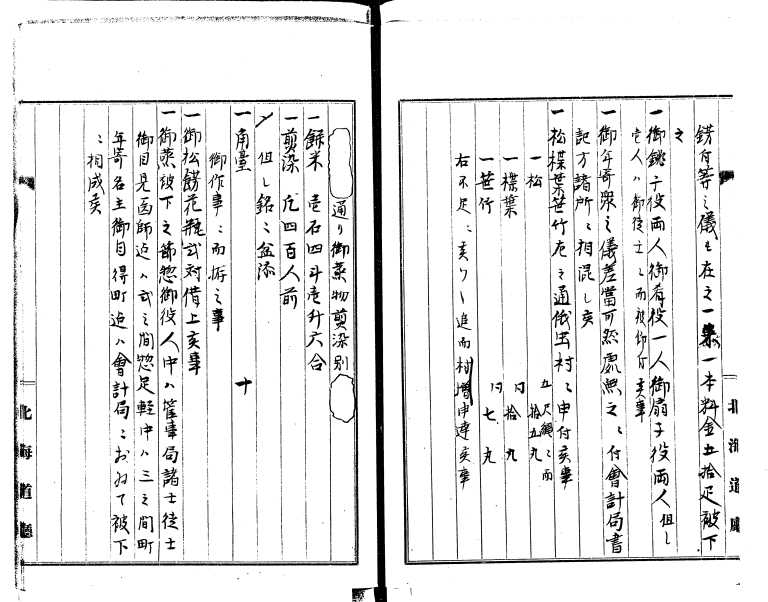 錺付等之儀も在之一集一本料金五拾疋被下
之
一御銚子役両人御肴役一人御扇子役両人但し
壱人ハ御徒士ニ而被仰付亥事
一御年寄衆之儀差当可然處無之ニ付會計局書
記方諸所ニ相混し亥
一松楪葉笹竹左之通俄虫村ニ申付亥事
一松 五尺縄ニ而 拾五丸
一楪葉 同 拾丸
一笹竹 同 七丸
右不足ニ亥ハヽ追而村増申達亥事
北海道廳
通り御菓物剪染別
一餅米 壱石四斗壱升六合
一剪染 凡四百人前
但し銘ニ盆添
一角臺 十
御作事ニ而拵之事
一御松錺花瓶弐対借上亥事
一御菓被下之節惣御役人中ハ筐事局諸士徒士
御目見医師迄ハ弐之間惣足軽中ハ三之間町
年寄名主御目得町迄ハ會計局ニおゐて被下
ニ相成亥
北海道廳